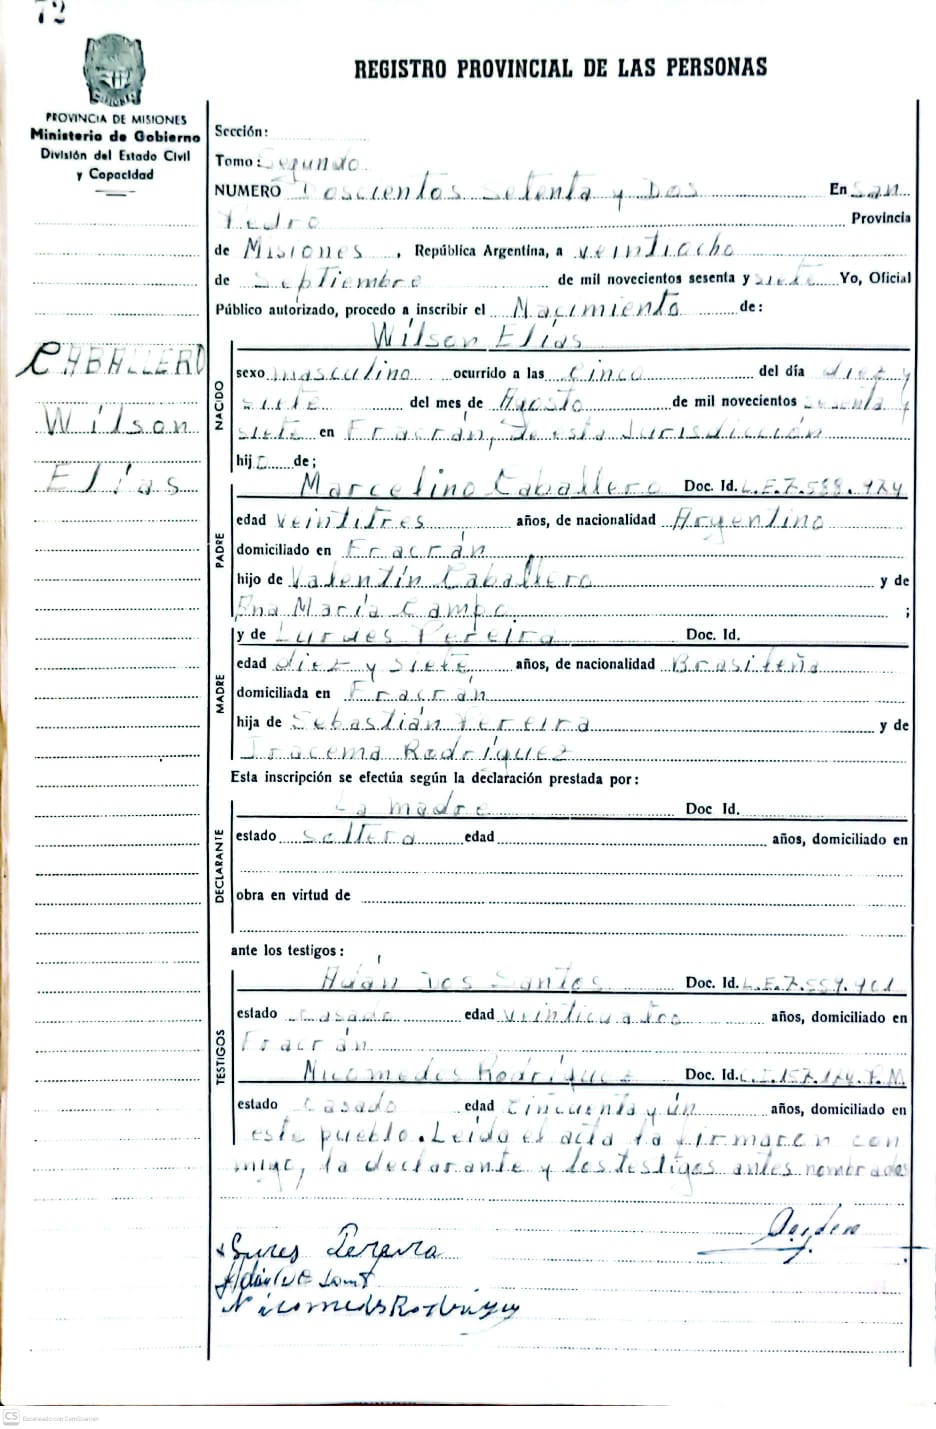 72
REGISTRO PROVINCIAL DE LAS PERSONAS
PROVINCIA DE MISIONES
Ministerio de Gobierno
División del Estado Civil
y Capacidad
Sección:
Tomo: Segundo
NUMERO Doscientos Setenta y Dos En San
Pedro Provincia
de Misiones, República Argentina, a veintiocho
de Septiembre de mil novecientos sesenta y siete Yo, Oficial
Público autorizado, procedo a inscribir el Nacimiento de:
CABALLERO
Wilson
Elías
NACIDO
Wilson Elías
sexo masculino ocurrido a las cinco del día diez y
siete del mes de Agosto de mil novecientos sesenta y
siete en Fracrán, De esta Jurisdicción
hijo de;
PADRE
Marcelino Caballero Doc. Id. L.E.7.588.924
edad veintitres años, de nacionalidad Argentino
domiciliado en Fracrán
hijo de Valentín Caballero y de
Ana María Campo ;
MADRE
y de Lurdes Pereira Doc. Id.
edad diez y siete años, de nacionalidad Brasileña
domiciliada en Fracrán
hija de Sebastián Pereira y de
Iracema Rodríguez
Esta inscripción se efectúa según la declaración prestada por:
DECLARANTE
La madre Doc Id.
estado soltera edad años, domiciliado en
obra en virtud de
ante los testigos:
TESTIGOS
Adán Dos Santos Doc. Id. L.E.7.559.961
estado casado edad veinticuatro años, domiciliado en
Fracrán
Nicomedes Rodríguez Doc. Id. C.I.157.124.P.M
estado casado edad cincuenta y ún años, domiciliado en
este pueblo. Leído el acta la firmaron con
migo, la declarante y los testigos antes nombrados
Pereira
Nicomedes Rodriguez
CS Escaneado con CamScanner